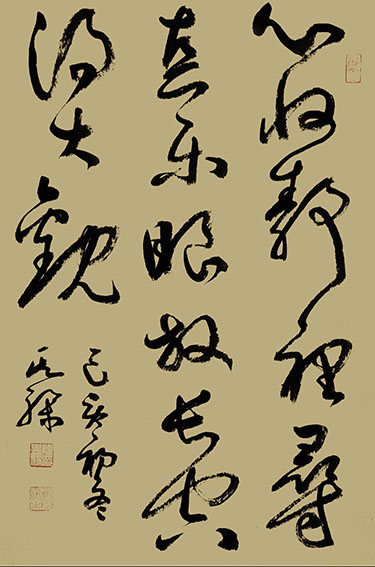 心收靜裡尋
真樂眼放長空
得大觀
己亥初冬